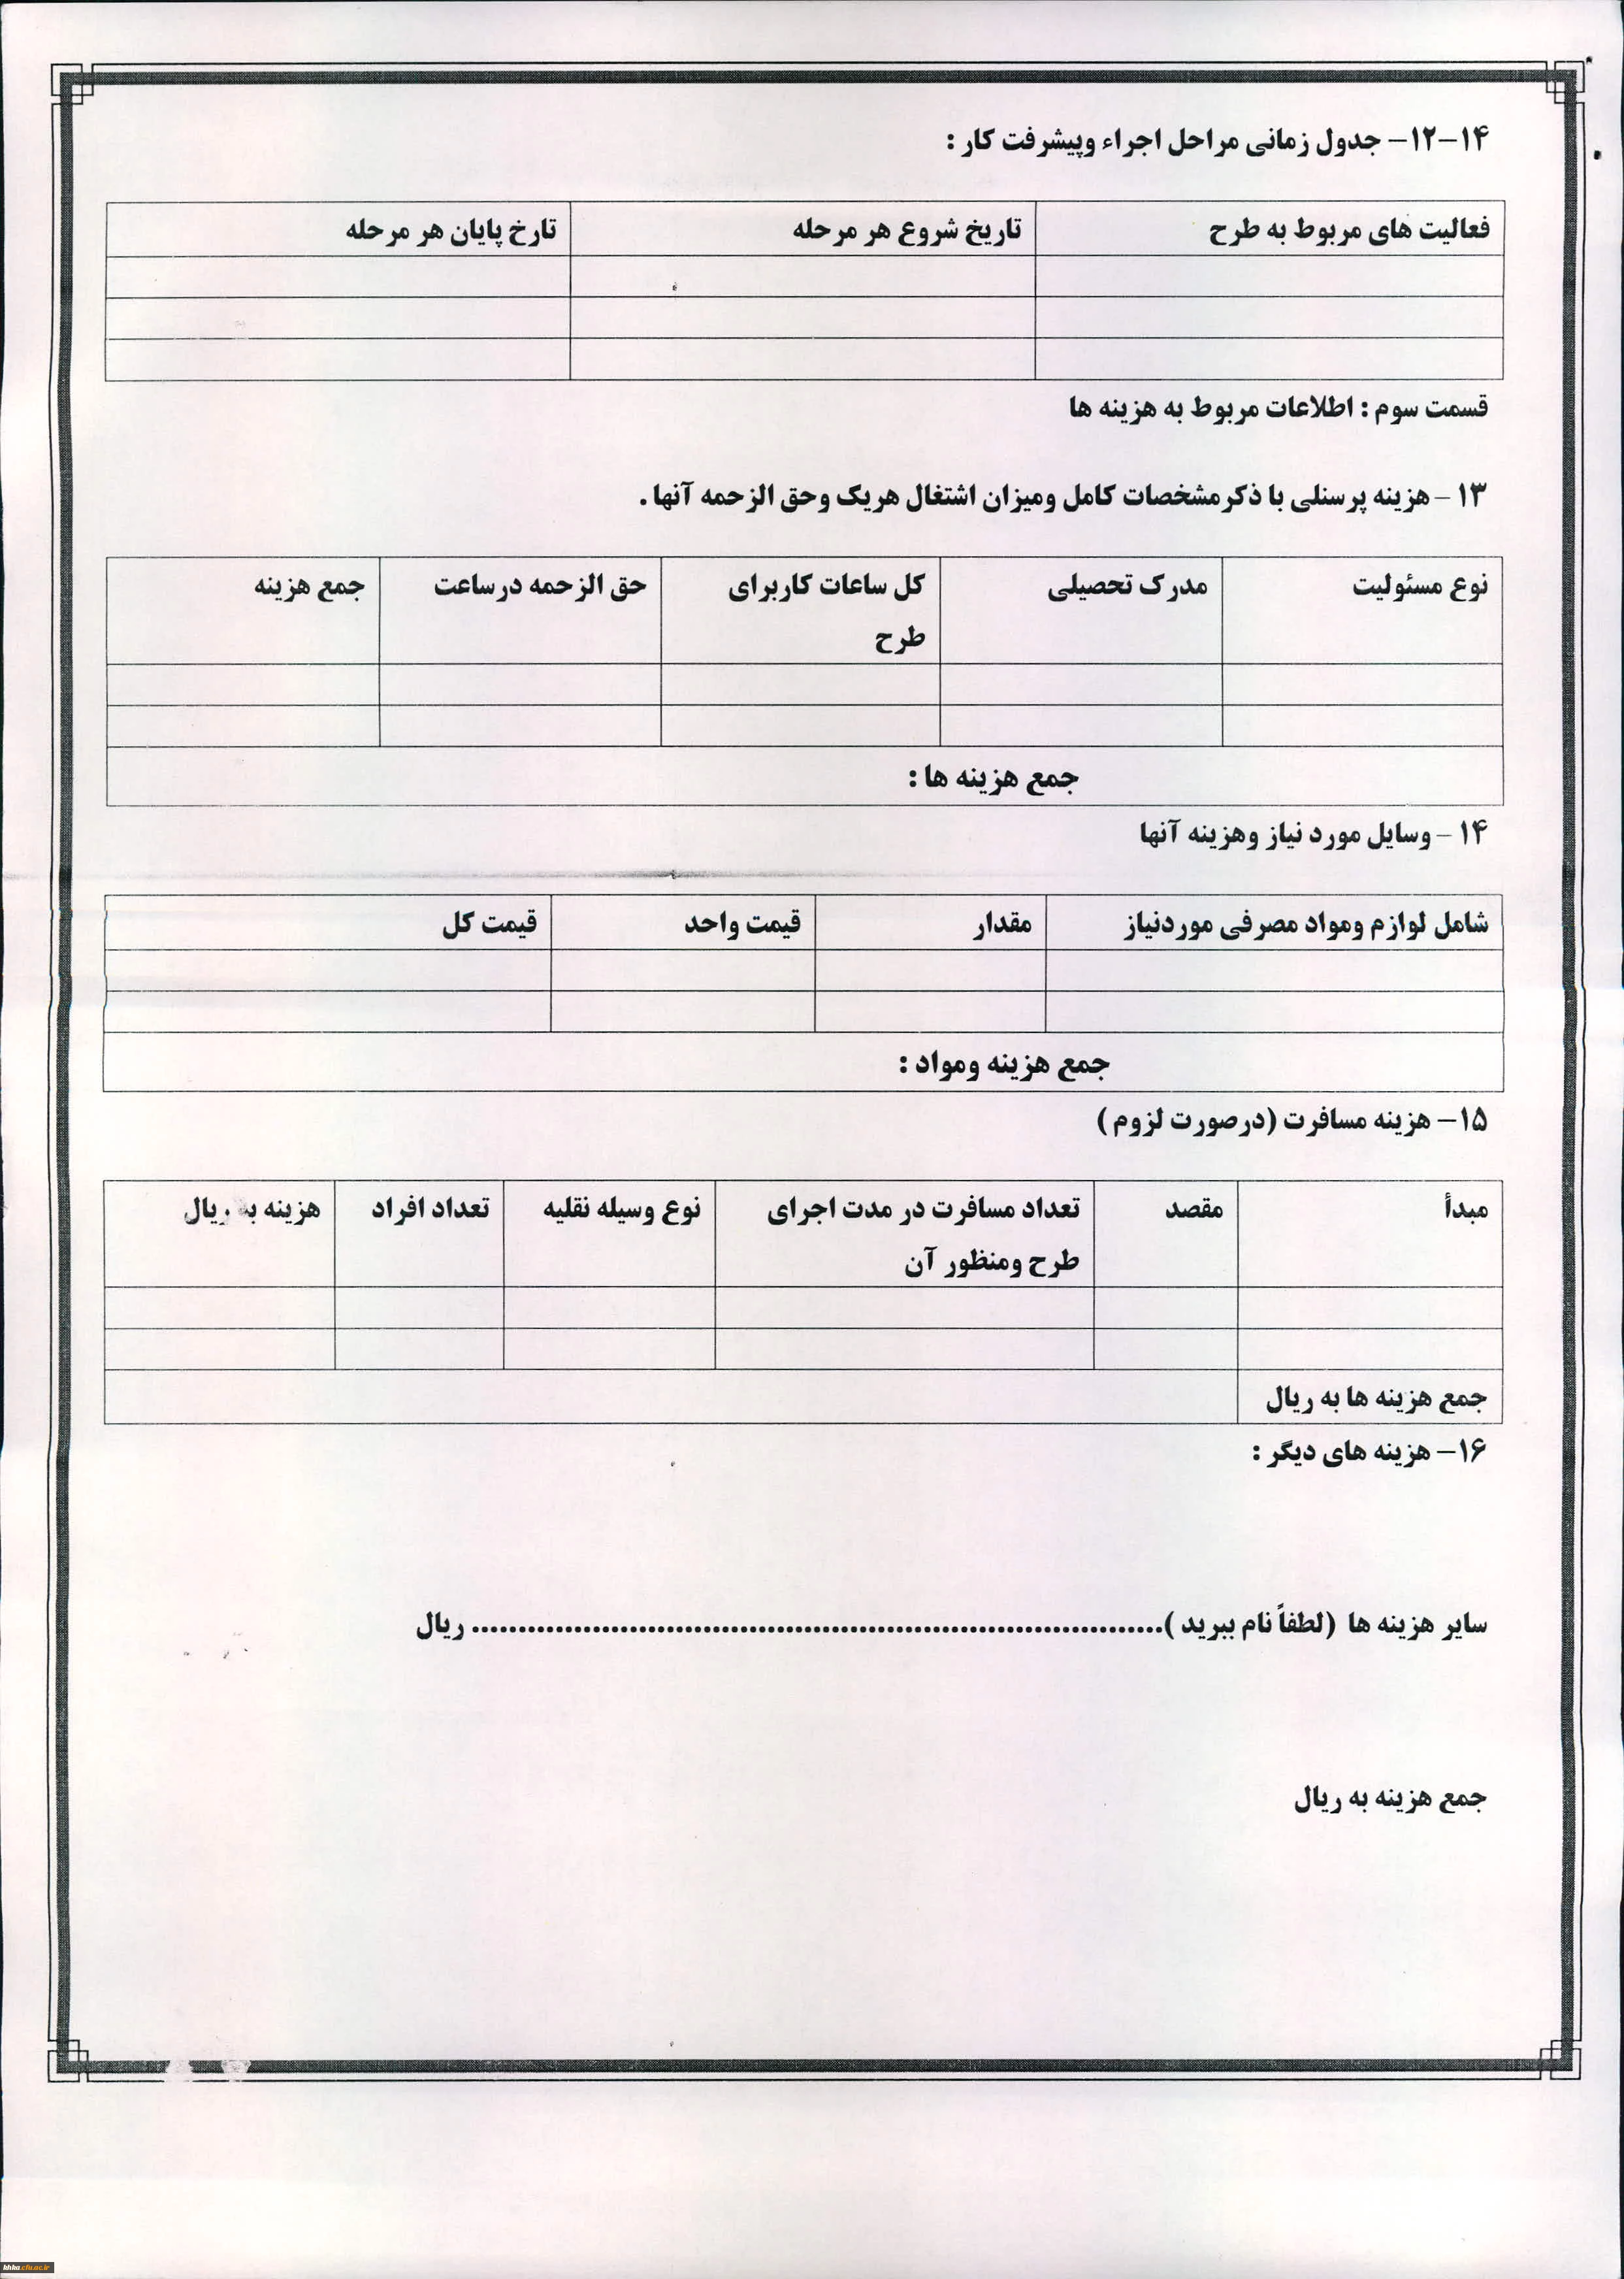 ۱۴–۱۲– جدول زمانی مراحل اجراء وپیشرفت کار :
فعالیت های مربوط به طرح تاریخ شروع هر مرحله تارخ پایان هر مرحله
قسمت سوم : اطلاعات مربوط به هزینه ها
۱۳ – هزینه پرسنلی با ذکر مشخصات کامل ومیزان اشتغال هریک وحق الزحمه آنها .
نوع مسئولیت مدرک تحصیلی کل ساعات کاربرای طرح حق الزحمه درساعت جمع هزینه
جمع هزینه ها :
۱۴ – وسایل مورد نیاز وهزینه آنها
شامل لوازم ومواد مصرفی موردنیاز مقدار قیمت واحد قیمت کل
جمع هزینه ومواد :
۱۵– هزینه مسافرت (درصورت لزوم )
مبدأ مقصد تعداد مسافرت در مدت اجرای طرح ومنظور آن نوع وسیله نقلیه تعداد افراد هزینه به ریال
جمع هزینه ها به ریال
۱۶– هزینه های دیگر :
سایر هزینه ها (لطفاً نام ببرید )........................................................................... ریال
جمع هزینه به ریال
khka.cfu.ac.ir